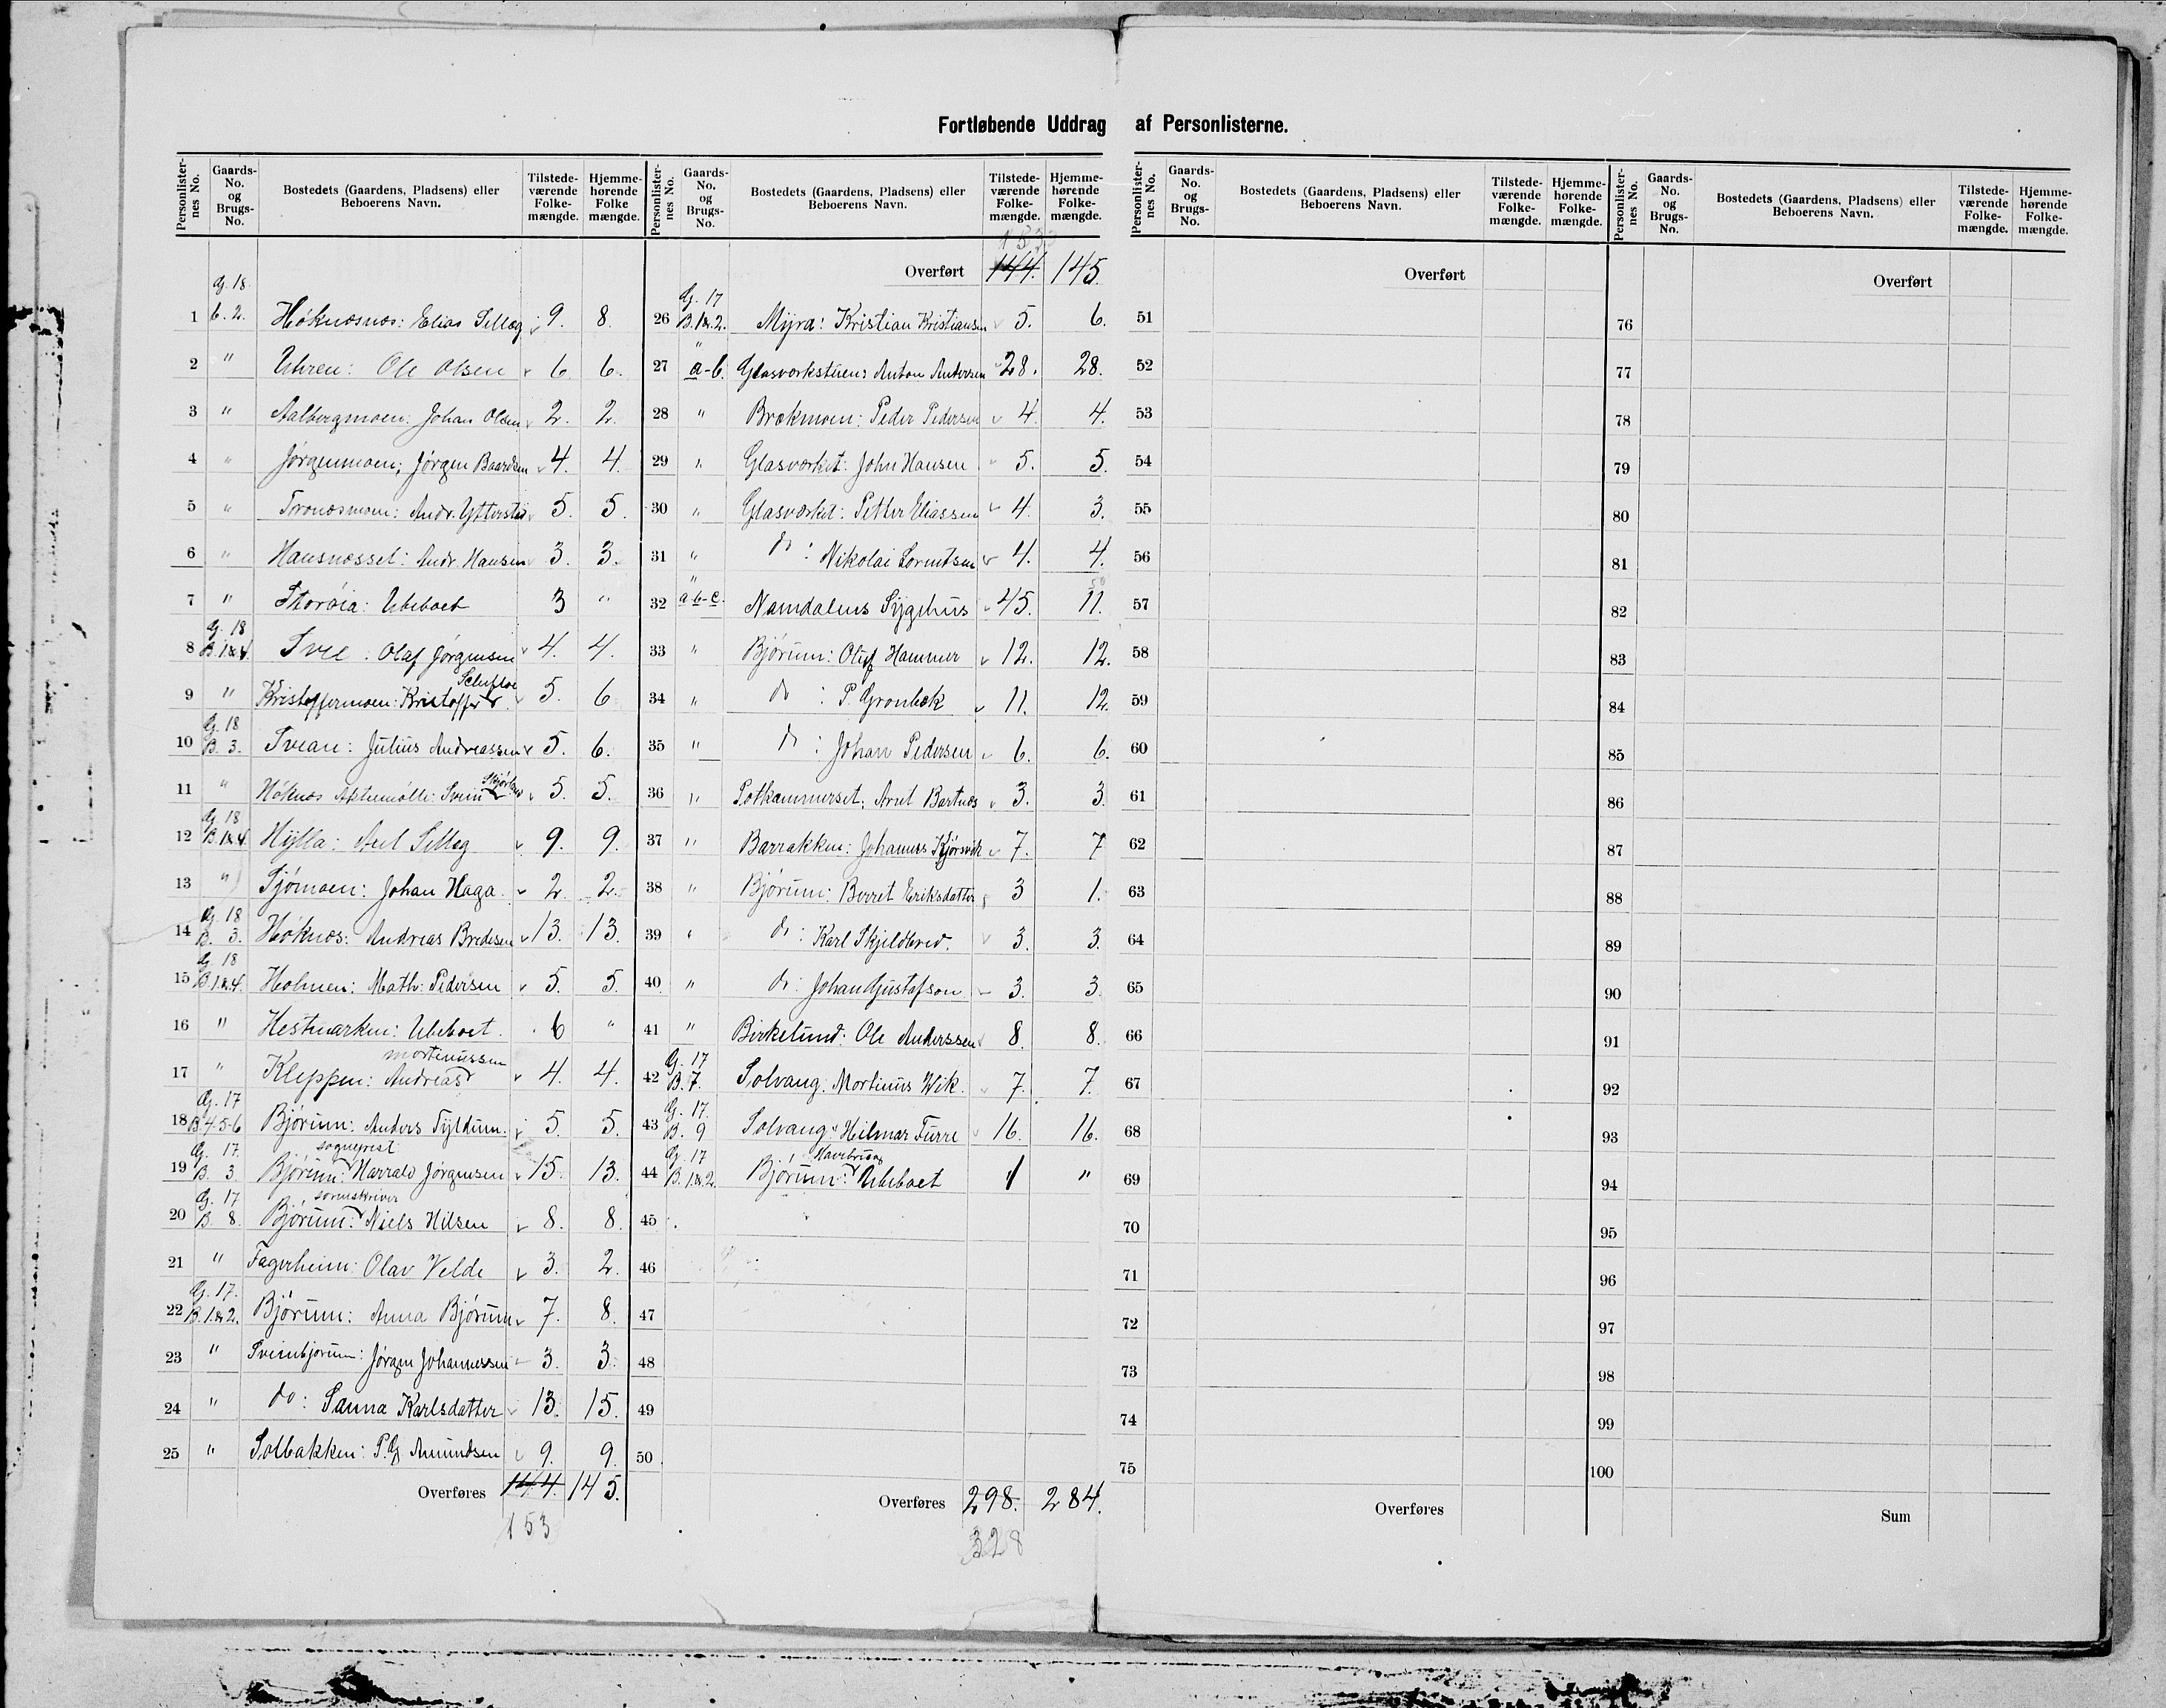 Fortløbende Uddrag af Personlisterne.
Personlisternes No. Gaards-No. og Brugs-No. Bostedets (Gaardens, Pladsens) eller Beboerens Navn. Tilstedeværende Folkemængde. Hjemmehørende Folkemængde.
Personlisternes No. Gaards-No. og Brugs-No. Bostedets (Gaardens, Pladsens) eller Beboerens Navn. Tilstedeværende Folkemængde. Hjemmehørende Folkemængde.
Personlisternes No. Gaards-No. og Brugs-No. Bostedets (Gaardens, Pladsens) eller Beboerens Navn. Tilstedeværende Folkemængde. Hjemmehørende Folkemængde.
Personlisternes No. Gaards-No. og Brugs-No. Bostedets (Gaardens, Pladsens) eller Beboerens Navn. Tilstedeværende Folkemængde. Hjemmehørende Folkemængde.
G. 18
1 b. 2. Höknesnes: Elias Selleg 9. 8.
2 " Uhren: Ole Olsen 6. 6.
3 " Aalbergmoen: Johan Olsen 2. 2.
4 " Jørgenmoen; Jørgen Baardsen 4. 4.
5 " Tronesmoen: Andr. 5. 5.
6 " Hansnesset: Andr. Hansen 3. 3.
7 " Storøia: Ubeboet 3 "
G. 18
8 B. 1&4. Svee: Olaf Jørgensen 4. 4.
9 " Kristoffermoen: Kristoffer 5. 6
G. 18
10 B. 3. Svean: Julius Andreassen 5. 6.
11 " Höknes Aktiemølle: Svein 5. 5.
G. 18
12 B. 1&4. Hylla: Axel Selleg 9. 9.
13 " Sjømoen: Johan Haga 2. 2.
G. 18
14 B. 3. Höknes: Andreas Bredesen 13. 13.
G. 18
15 B. 1&4. Holmen: Math: Pedersen 5. 5.
16 " Hestmarken: Ubeboet. 6 "
mortinussen
17 " Kleppen: Andreas 4. 4.
G. 17
18 B. 4-5-6 Bjørum: Anders Fyldum. 5. 5.
G. 17. sogneprest
19 B. 3 Bjørum: Harrald Jørgensen 15. 13.
G. 17 sorenskriver
20 B. 8. Bjørum: Niels Nilsen 8. 8.
21 " Fagerheim: Olav Velde 3. 2.
G. 17.
22 B. 1&2. Bjørum: Anna Bjørum 7. 8.
23 " Sveinbjorum: Jørgen Johannessen 3. 3.
24 " do: Sanna Karlsdatter 13. 15.
25 " Solbakken: P. G. Amundsen 9. 9.
Overføres 144. 145.
153
153
Overført 144. 145.
G. 17
26 B. 1&2. Myra: Kristian Kristiansen 5. 6.
"
27 a-b. Glasverkstuen: Anton Andersen 28. 28.
28 " Brekmoen: Peder Pedersen 4. 4.
29 " Glasverket: John Hansen 5. 5.
30 " Glasverket: Petter Eliassen 4. 3.
31 " do: Nikolai Lorentsen 4. 4.
" 50
32 a-b-c. Namdalens Sygehus 45. 11.
33 " Bjørum: Oluf Hammer 12. 12.
34 " do: P. Grønbek 11. 12.
35 " do: Johan Pedersen 6. 6.
36 " Potkammerset; Arnt Bartnes 3. 3.
37 " Barrakken: Johannes 7. 7
38 " Bjørum: Berret Eriksdatter 3 1.
39 " do: Karl Skjeldbred. 3. 3.
40 " do: Johan Gustafson 3. 3.
41 " Birkelund: Ole Anderssen 8. 8.
G. 17
42 B. 7. Solvang: Mortinus Wik. 7. 7.
G. 17.
43 B. 9 Solvang: Hilmar Furre 16. 16.
G. 17
44 B. 1&2. Bjørum: Ubeboet 1 "
45
46
47
48
49
50
Overføres 298. 284.
328
Overført
51
52
53
54
55
56
57
58
59
60
61
62
63
64
65
66
67
68
69
70
71
72
73
74
75
Overføres
Overført
76
77
78
79
80
81
82
83
84
85
86
87
88
89
90
91
92
93
94
95
96
97
98
99
100
Sum